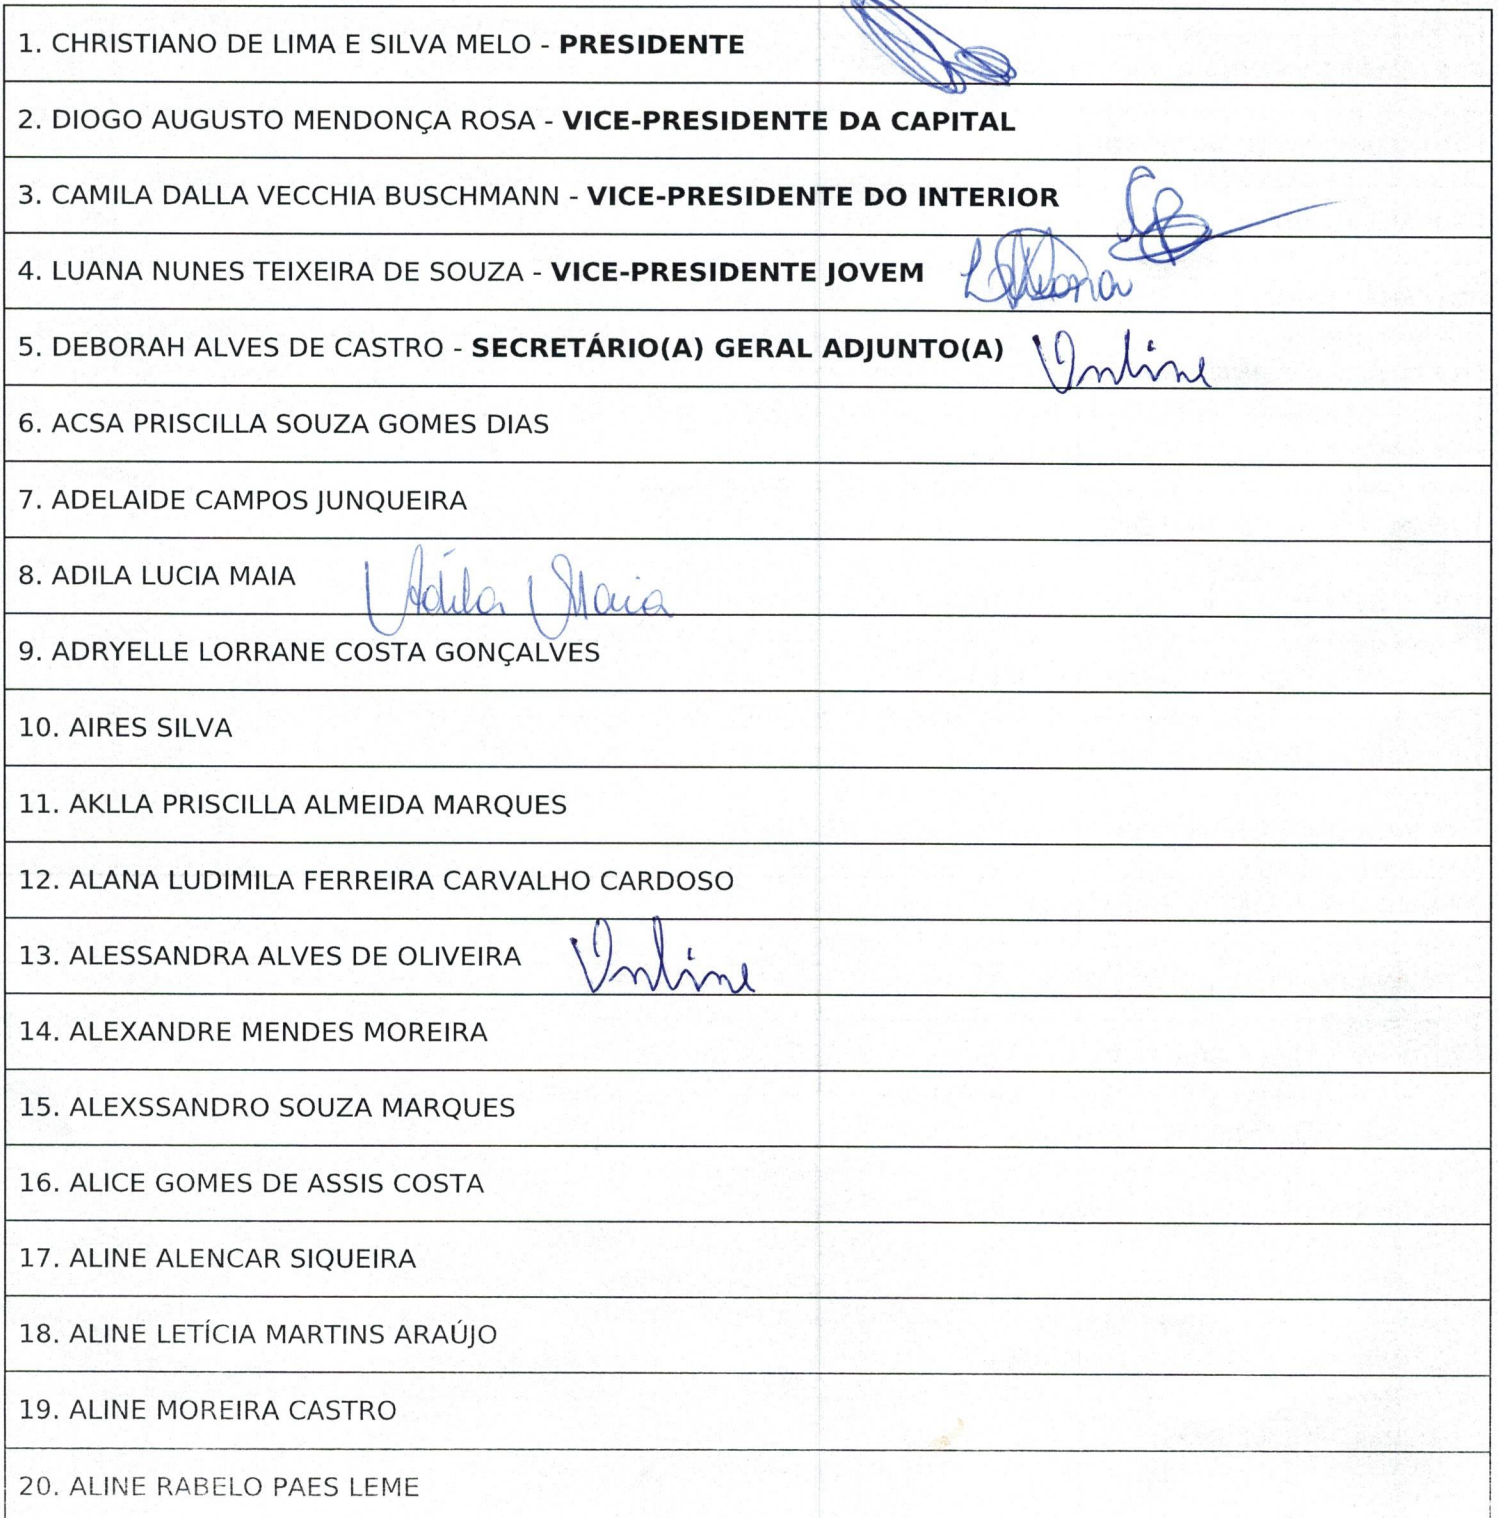 1. CHRISTIANO DE LIMA E SILVA MELO - PRESIDENTE
2. DIOGO AUGUSTO MENDONÇA ROSA - VICE-PRESIDENTE DA CAPITAL
3. CAMILA DALLA VECCHIA BUSCHMANN - VICE-PRESIDENTE DO INTERIOR
4. LUANA NUNES TEIXEIRA DE SOUZA - VICE-PRESIDENTE JOVEM
5. DEBORAH ALVES DE CASTRO - SECRETÁRIO(A) GERAL ADJUNTO(A) Online
6. ACSA PRISCILLA SOUZA GOMES DIAS
7. ADELAIDE CAMPOS JUNQUEIRA
8. ADILA LUCIA MAIA Adila Maia
9. ADRYELLE LORRANE COSTA GONÇALVES
10. AIRES SILVA
11. AKLLA PRISCILLA ALMEIDA MARQUES
12. ALANA LUDIMILA FERREIRA CARVALHO CARDOSO
13. ALESSANDRA ALVES DE OLIVEIRA Online
14. ALEXANDRE MENDES MOREIRA
15. ALEXSSANDRO SOUZA MARQUES
16. ALICE GOMES DE ASSIS COSTA
17. ALINE ALENCAR SIQUEIRA
18. ALINE LETÍCIA MARTINS ARAÚJO
19. ALINE MOREIRA CASTRO
20. ALINE RABELO PAES LEME